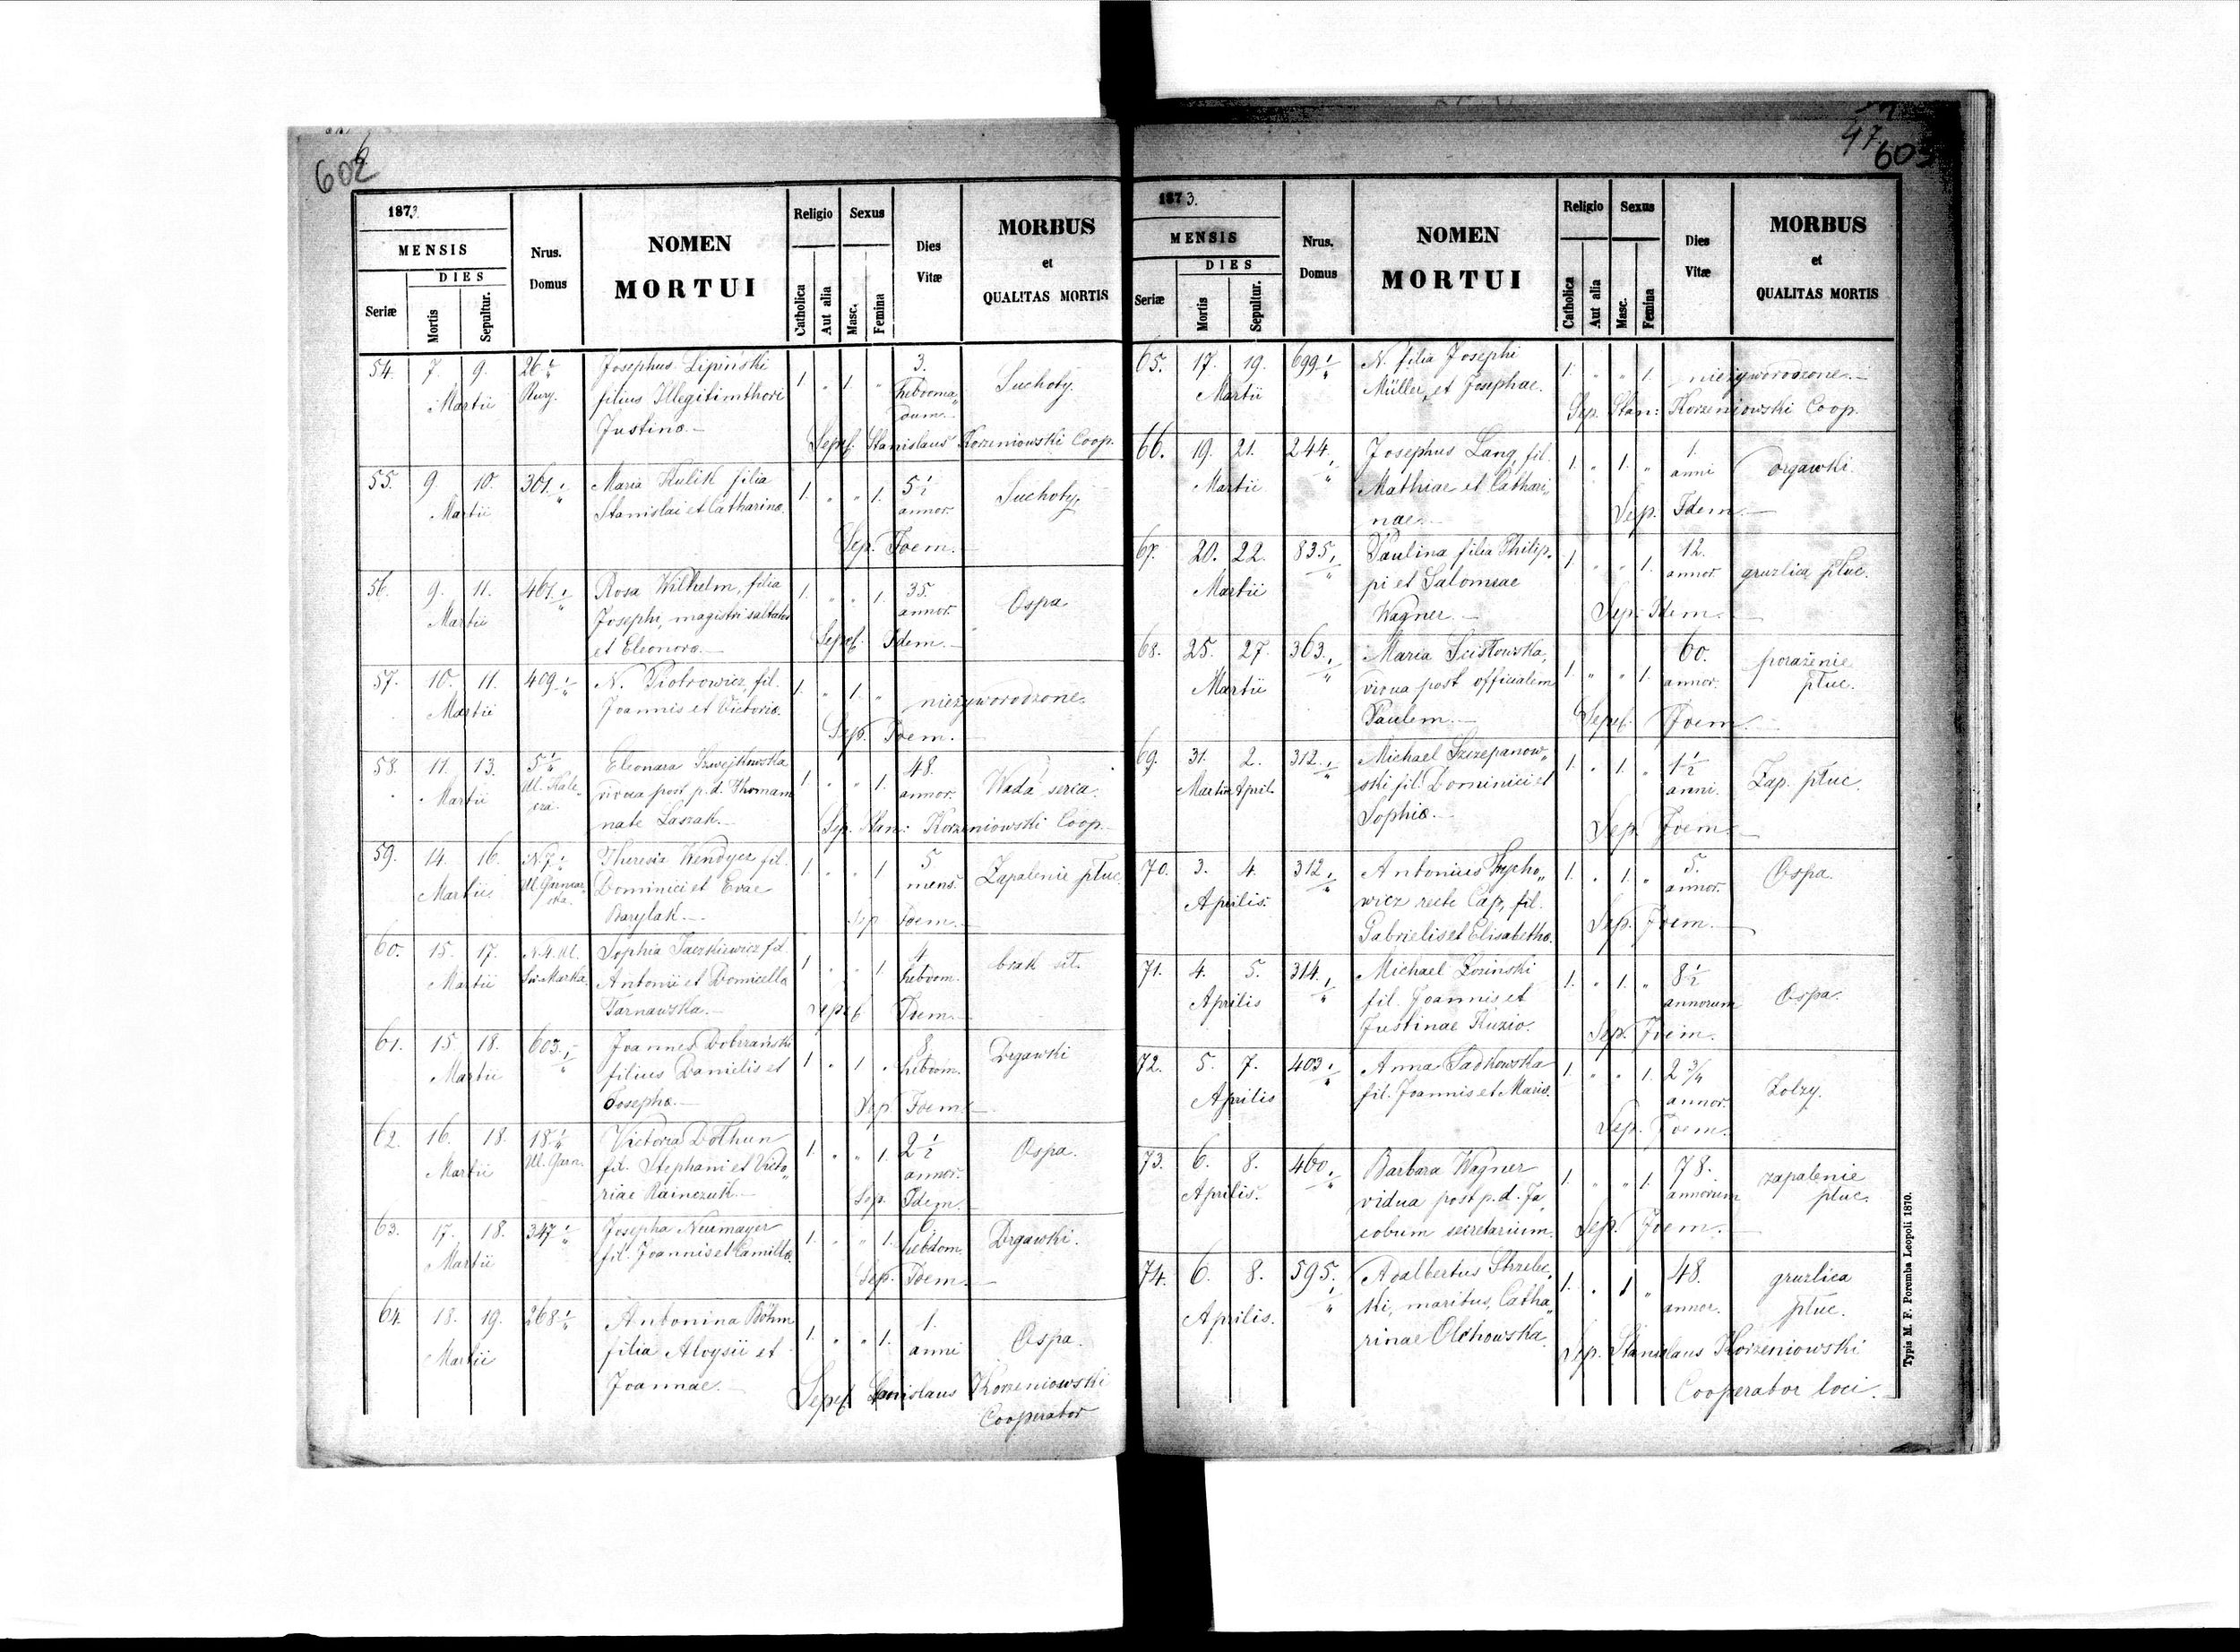 602
1873.
MENSIS
DIES
Seriæ
Mortis
Sepultur.
Nrus.
Domus
NOMEN
MORTUI
Religio
Catholica
Aut alia
Sexus
Masc.
Femina
Dies
Vitæ
MORBUS
et
QUALITAS MORTIS
54. 7. 9. 26 1/4 Josephus Lipiński 1. „ 1. „ 3. Suchoty.
Martii Rury. filius Illegitimthori hebdoma„
Justina.— dum.—
Sepel. Stanislaus Korzeniowski Coop.
55. 9 10. 301. 1/4 Maria Kulik filia 1. „ „ 1. 5 1/2 Suchoty.
Martii Stanislai et Catharina. annor.
Sep. Idem.—
56. 9. 11. 461. 1/4 Rosa Wilhelm, filia 1. „ „ 1. 35. Ospa
Martii Josephi, magistri saltatus annor.
et Eleonora.— Sepel. Idem.—
57. 10. 11. 409 1/4 N. Piotrowicz, fil. 1. „ 1. „ nieżyworodzone.
Martii Joannis et Victoria.
Sep. Idem.—
58. 11. 13. 5 1/4 Eleonara Szwejkowska 1. „ „ 1. 48. Wada seria.
Martii Ul. Kale„ vidua post p.d. Thomam annor.
cza. nate Laszak.— Sep. Stan: Korzeniowski Coop.
59. 14. 16. N. 7. Theresia Wendyer fil. 1. „ „ 1 5 Zapalenie płuc.
Martii. Ul. Garncar„ Dominici et Evae mens.
ska. Barylak.— Sep Idem.—
60. 15. 17. N. 4. Ul. Sophia Jaczkiewicz fil. 1. „ „ 1. 4 brak sił.
Martii Sw. Marka. Antonii et Domicella hebdom.
Tarnawska.— Sepel Idem.—
61. 15 18. 603. 1/4 Joannes Dobrzański 1. „ 1 „ 8. Drgawki
Martii filius Danielis et hebdom.
Josepha.— Sep Idem.—
62. 16. 18. 18 1/4 Victoria Dolhun 1. „ „ 1. 2 1/2 Ospa.
Martii Ul. Garn. fil. Stephani et Victo„ annor.
riae Rainczuk.— Sep. Idem.
63. 17. 18. 347 1/4 Josepha Neumayer 1. „ „ 1. 6. Drgawki.
Martii fil. Joannis et Camilla. hebdom.
Sep. Idem.—
64. 18. 19. 268 1/4 Antonina Böhm 1. „ „ 1. 1. Ospa.
Martii filia Aloysii et anni
Joannae.— Sepel. Stanislaus Korzeniowski
Cooperator
47.
603
1873.
MENSIS
DIES
Seriæ
Mortis
Sepultur.
Nrus.
Domus
NOMEN
MORTUI
Religio
Catholica
Aut alia
Sexus
Masc.
Femina
Dies
Vitæ
MORBUS
et
QUALITAS MORTIS
65. 17. 19. 699 1/4 N. filia Josephi 1. „ „ 1. nieżyworodzone.—
Martii Müller, et Josephae.
Sep. Stan: Korzeniowski Coop.
66. 19. 21. 244. 1/4 Josephus Lang, fil. 1. „ 1. „ 1. drgawki.
Martii Mathiae et Cathari„ anni
nae.— Sep. Idem.—
67. 20. 22. 835. 1/4 Paulina filia Philip„ 1. „ „ 1. 12. gruzlica płuc.
Martii pi et Salomeae annor.
Wagner.— Sep. Idem.—
68. 25. 27. 363. 1/4 Maria Scisłowska, 1. „ „ 1. 60. porażenie
Martii vidua post officialem annor. płuc.
Paulem.— Sepel. Idem.
69. 31. 2. 312. 1/4 Michael Szczepanow„ 1. „ 1. „ 1 1/2 Zap. płuc.
Martii April. ski fil. Dominici et anni.
Sophia.— Sep. Idem.—
70. 3. 4. 312. 1/4 Antonius Trypho„ 1. „ 1. „ 5. Ospa.
Aprilis. wicz recte Cap, fil. annor.
Gabrielis et Elisabetha. Sep. Idem.—
71. 4. 5. 314. 1/4 Michael Łosinski 1. „ 1. „ 8 1/2 Ospa.
Aprilis fil. Joannis et annorum
Justinae Kuzio. Sep. Idem.
72. 5. 7. 403. 1/4 Anna Sadkowska 1. „ „ 1. 2 3/4 Zolzy.
Aprilis fil. Joannis et Maria. annor.
Sep. Idem.
73. 6. 8. 460. 1/4 Barbara Wagner 1. „ „ 1. 78. zapalenie
Aprilis. vidua post p.d. Ja„ annorum płuc.
cobum secretarium. Sep. Idem.—
74. 6. 8. 595. 1/4 Adalbertus Strzelec„ 1. „ 1 „ 48. gruzlica
Aprilis. ki, maritus, Catha„ annor. płuc.
rinae Olchowska. Sep. Stanislaus Korzeniowski
Cooperator loci.—
Typis M. F. Poremba Leopoli 1870.